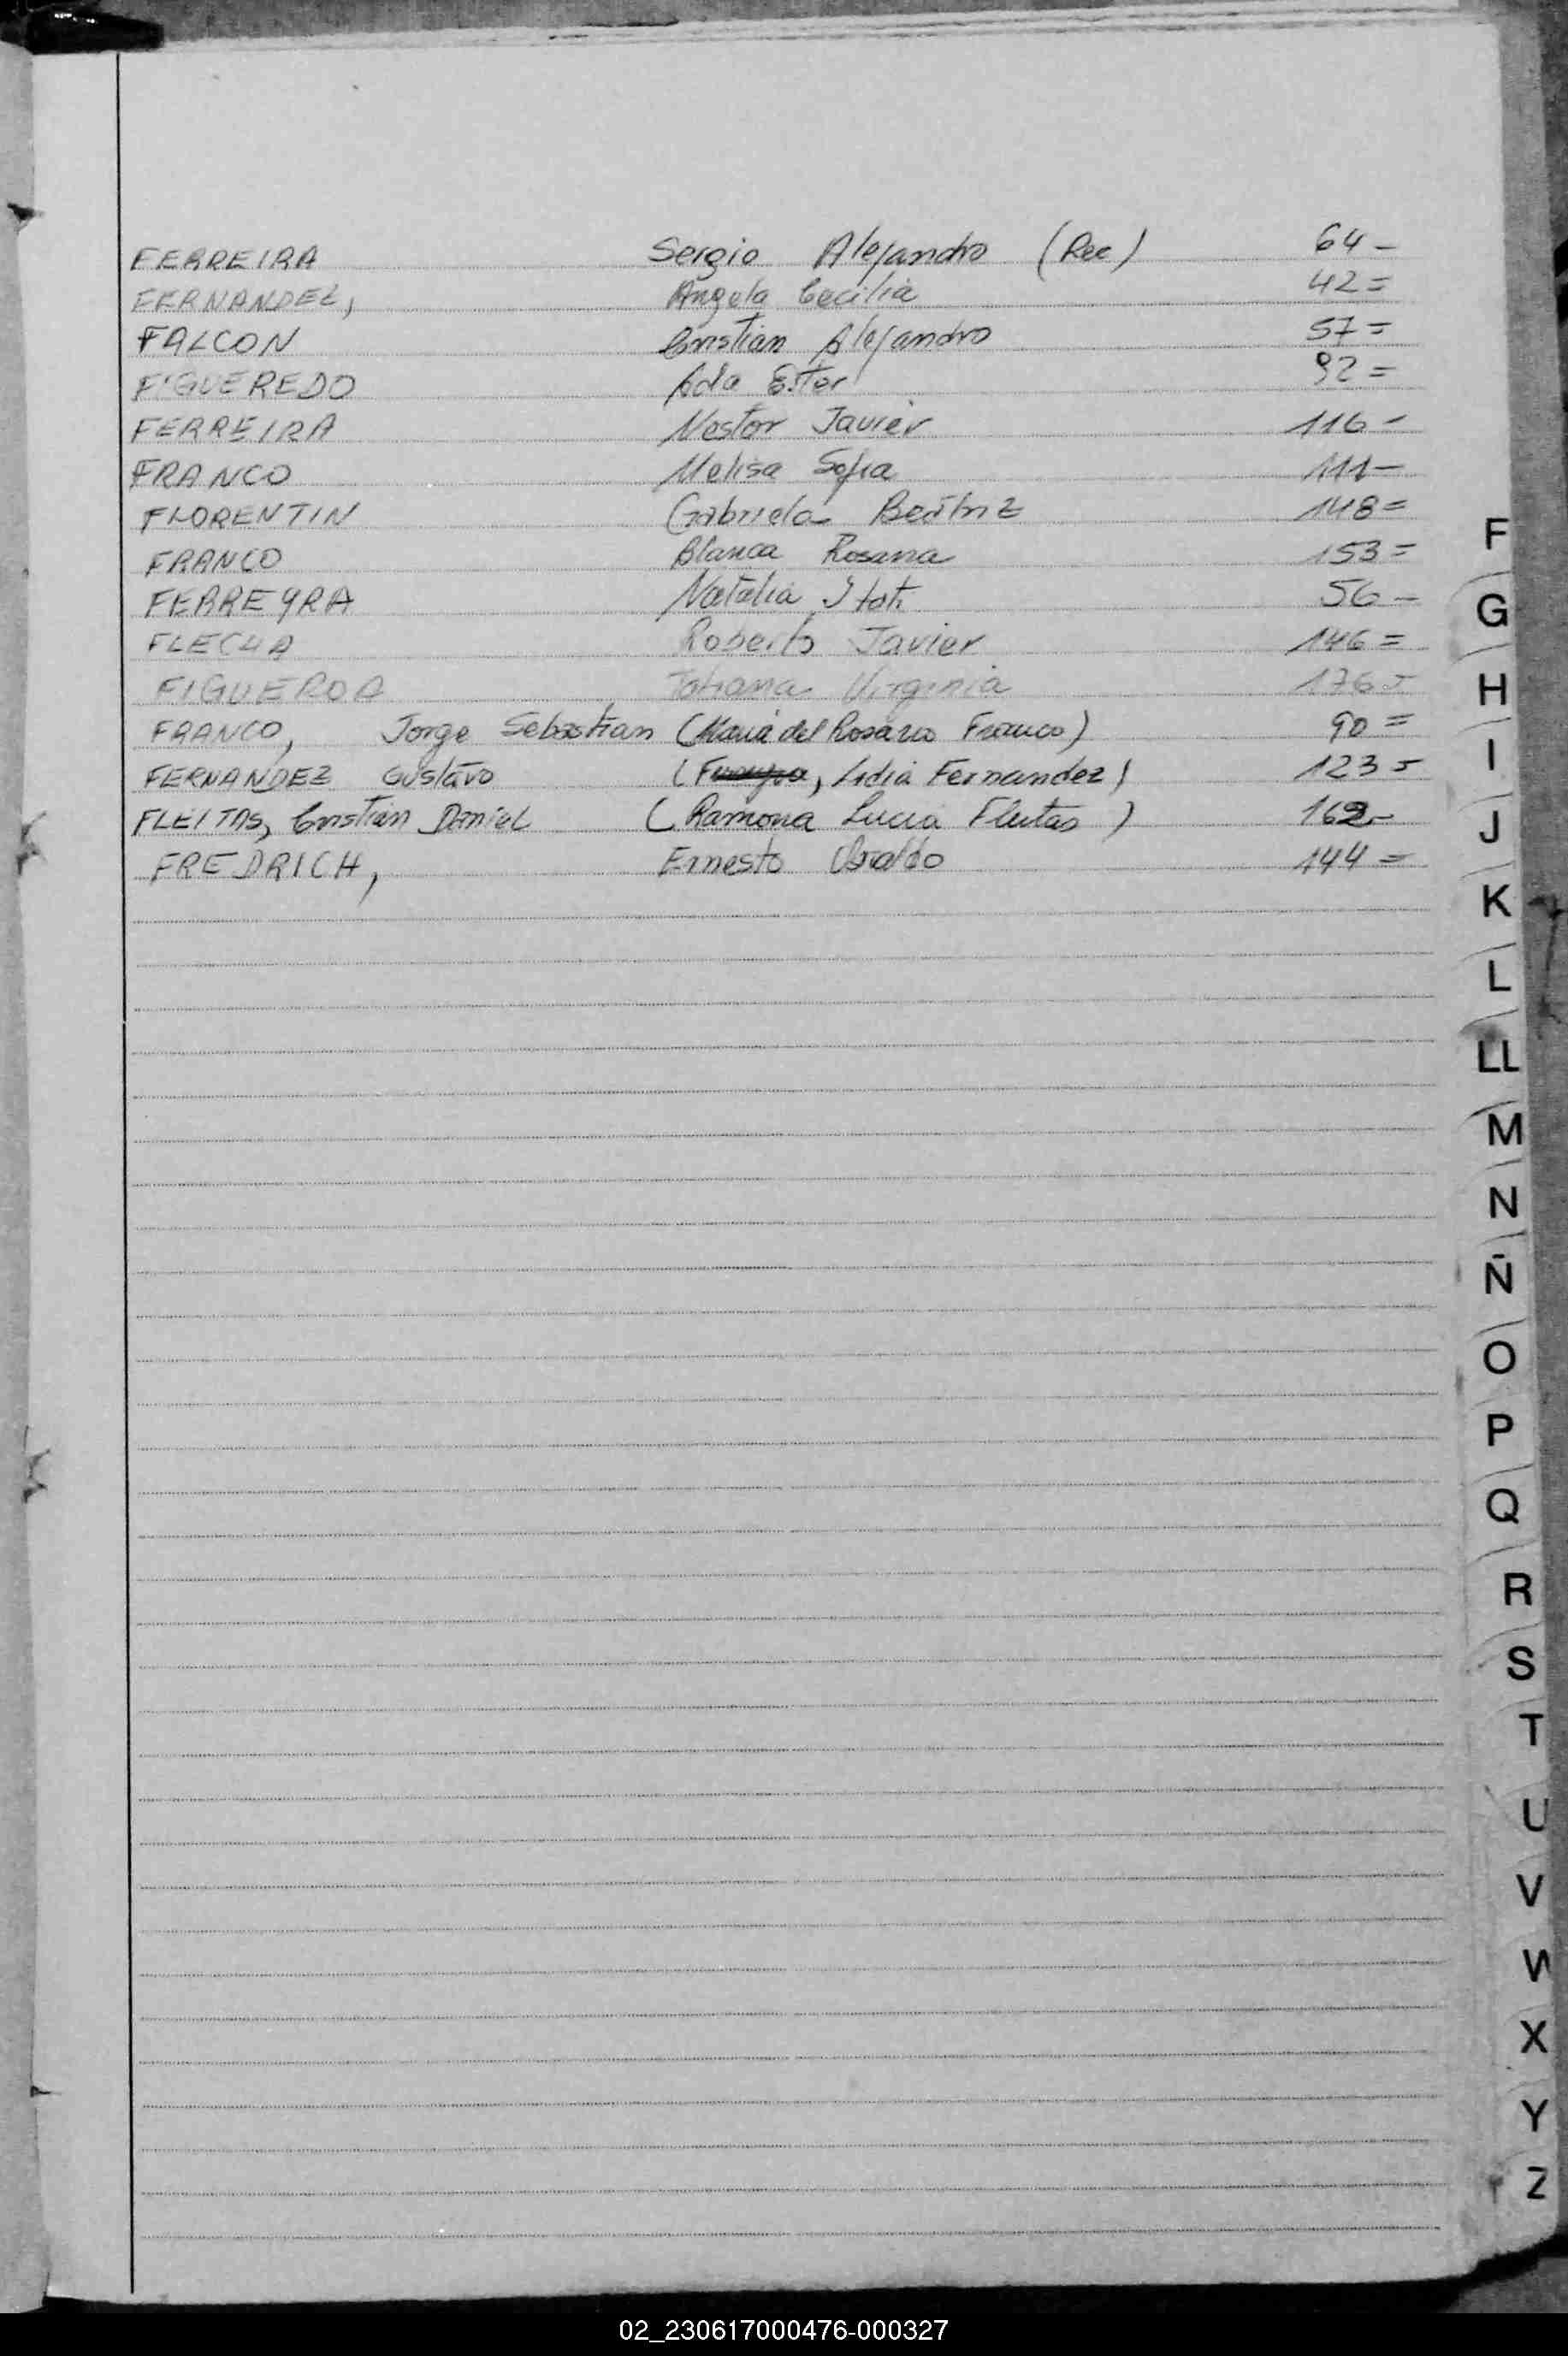 FERREIRA Sergio Alejandro (Rec) 64-
FERNANDEZ, Angela Cecilia 42=
FALCON Cristian Alejandro 57=
FIGUEREDO Ada Ester 92=
FERREIRA Nestor Javier 116-
FRANCO Melisa Sofia 111-
FLORENTIN Gabriela Beatriz 148=
FRANCO Blanca Rosana 153=
FERREYRA Natalia Itati 56-
FLECHA Roberto Javier 146=
FIGUEROA Tatiana Virginia 176=
FRANCO, Jorge Sebastian (Maria del Rosario Franco) 90=
FERNANDEZ Gustavo ( , Lidia Fernandez) 123=
FLEITAS, Cristian Daniel (Ramona Lucia Fleitas) 162-
FREDRICH, Ernesto 144=
F
G
H
I
J
K
L
LL
M
N
Ñ
O
P
Q
R
S
T
U
V
W
X
Y
Z
02_230617000476-000327